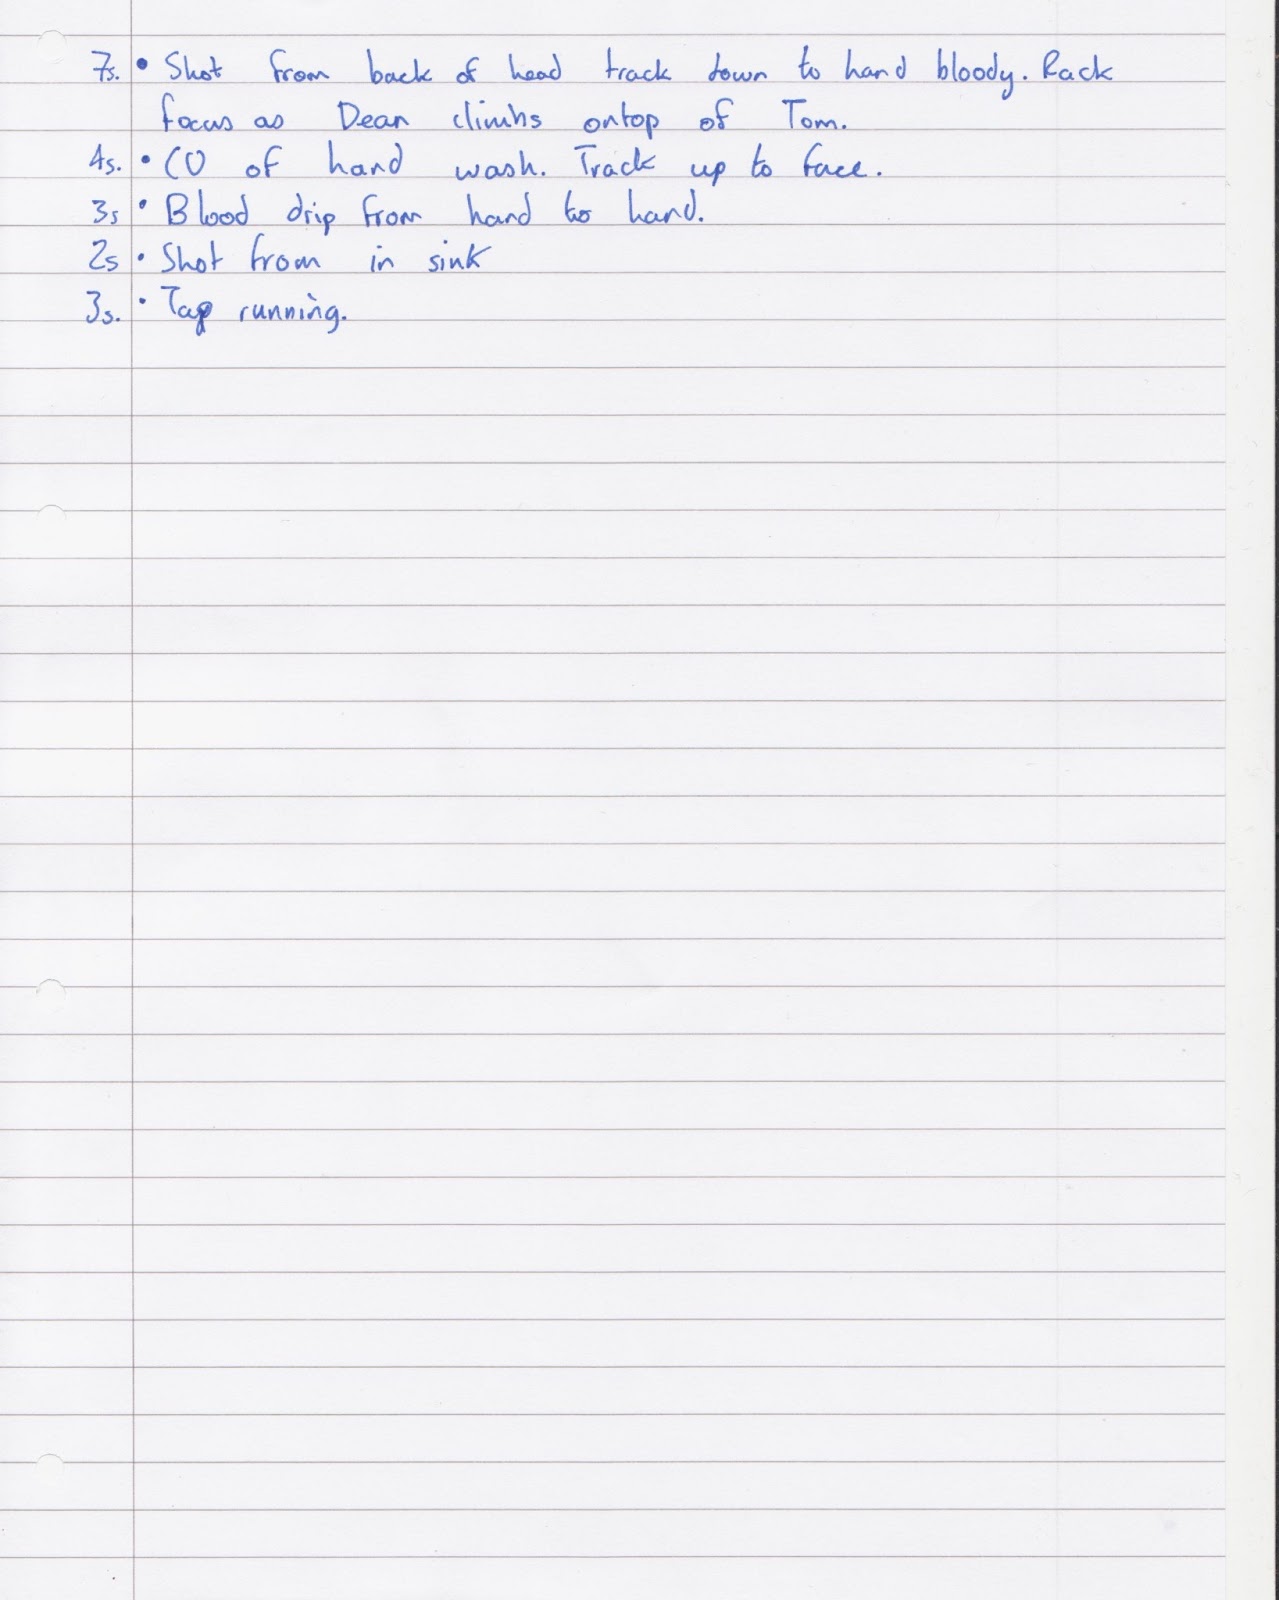 7s. • Shot from back of head track down to hand bloody. Rack
focus as Dean climbs ontop of Tom.
4s. • CU of hand wash. Track up to face.
3s • Blood drip from hand to hand.
2s • Shot from in sink
3s. • Tap running.